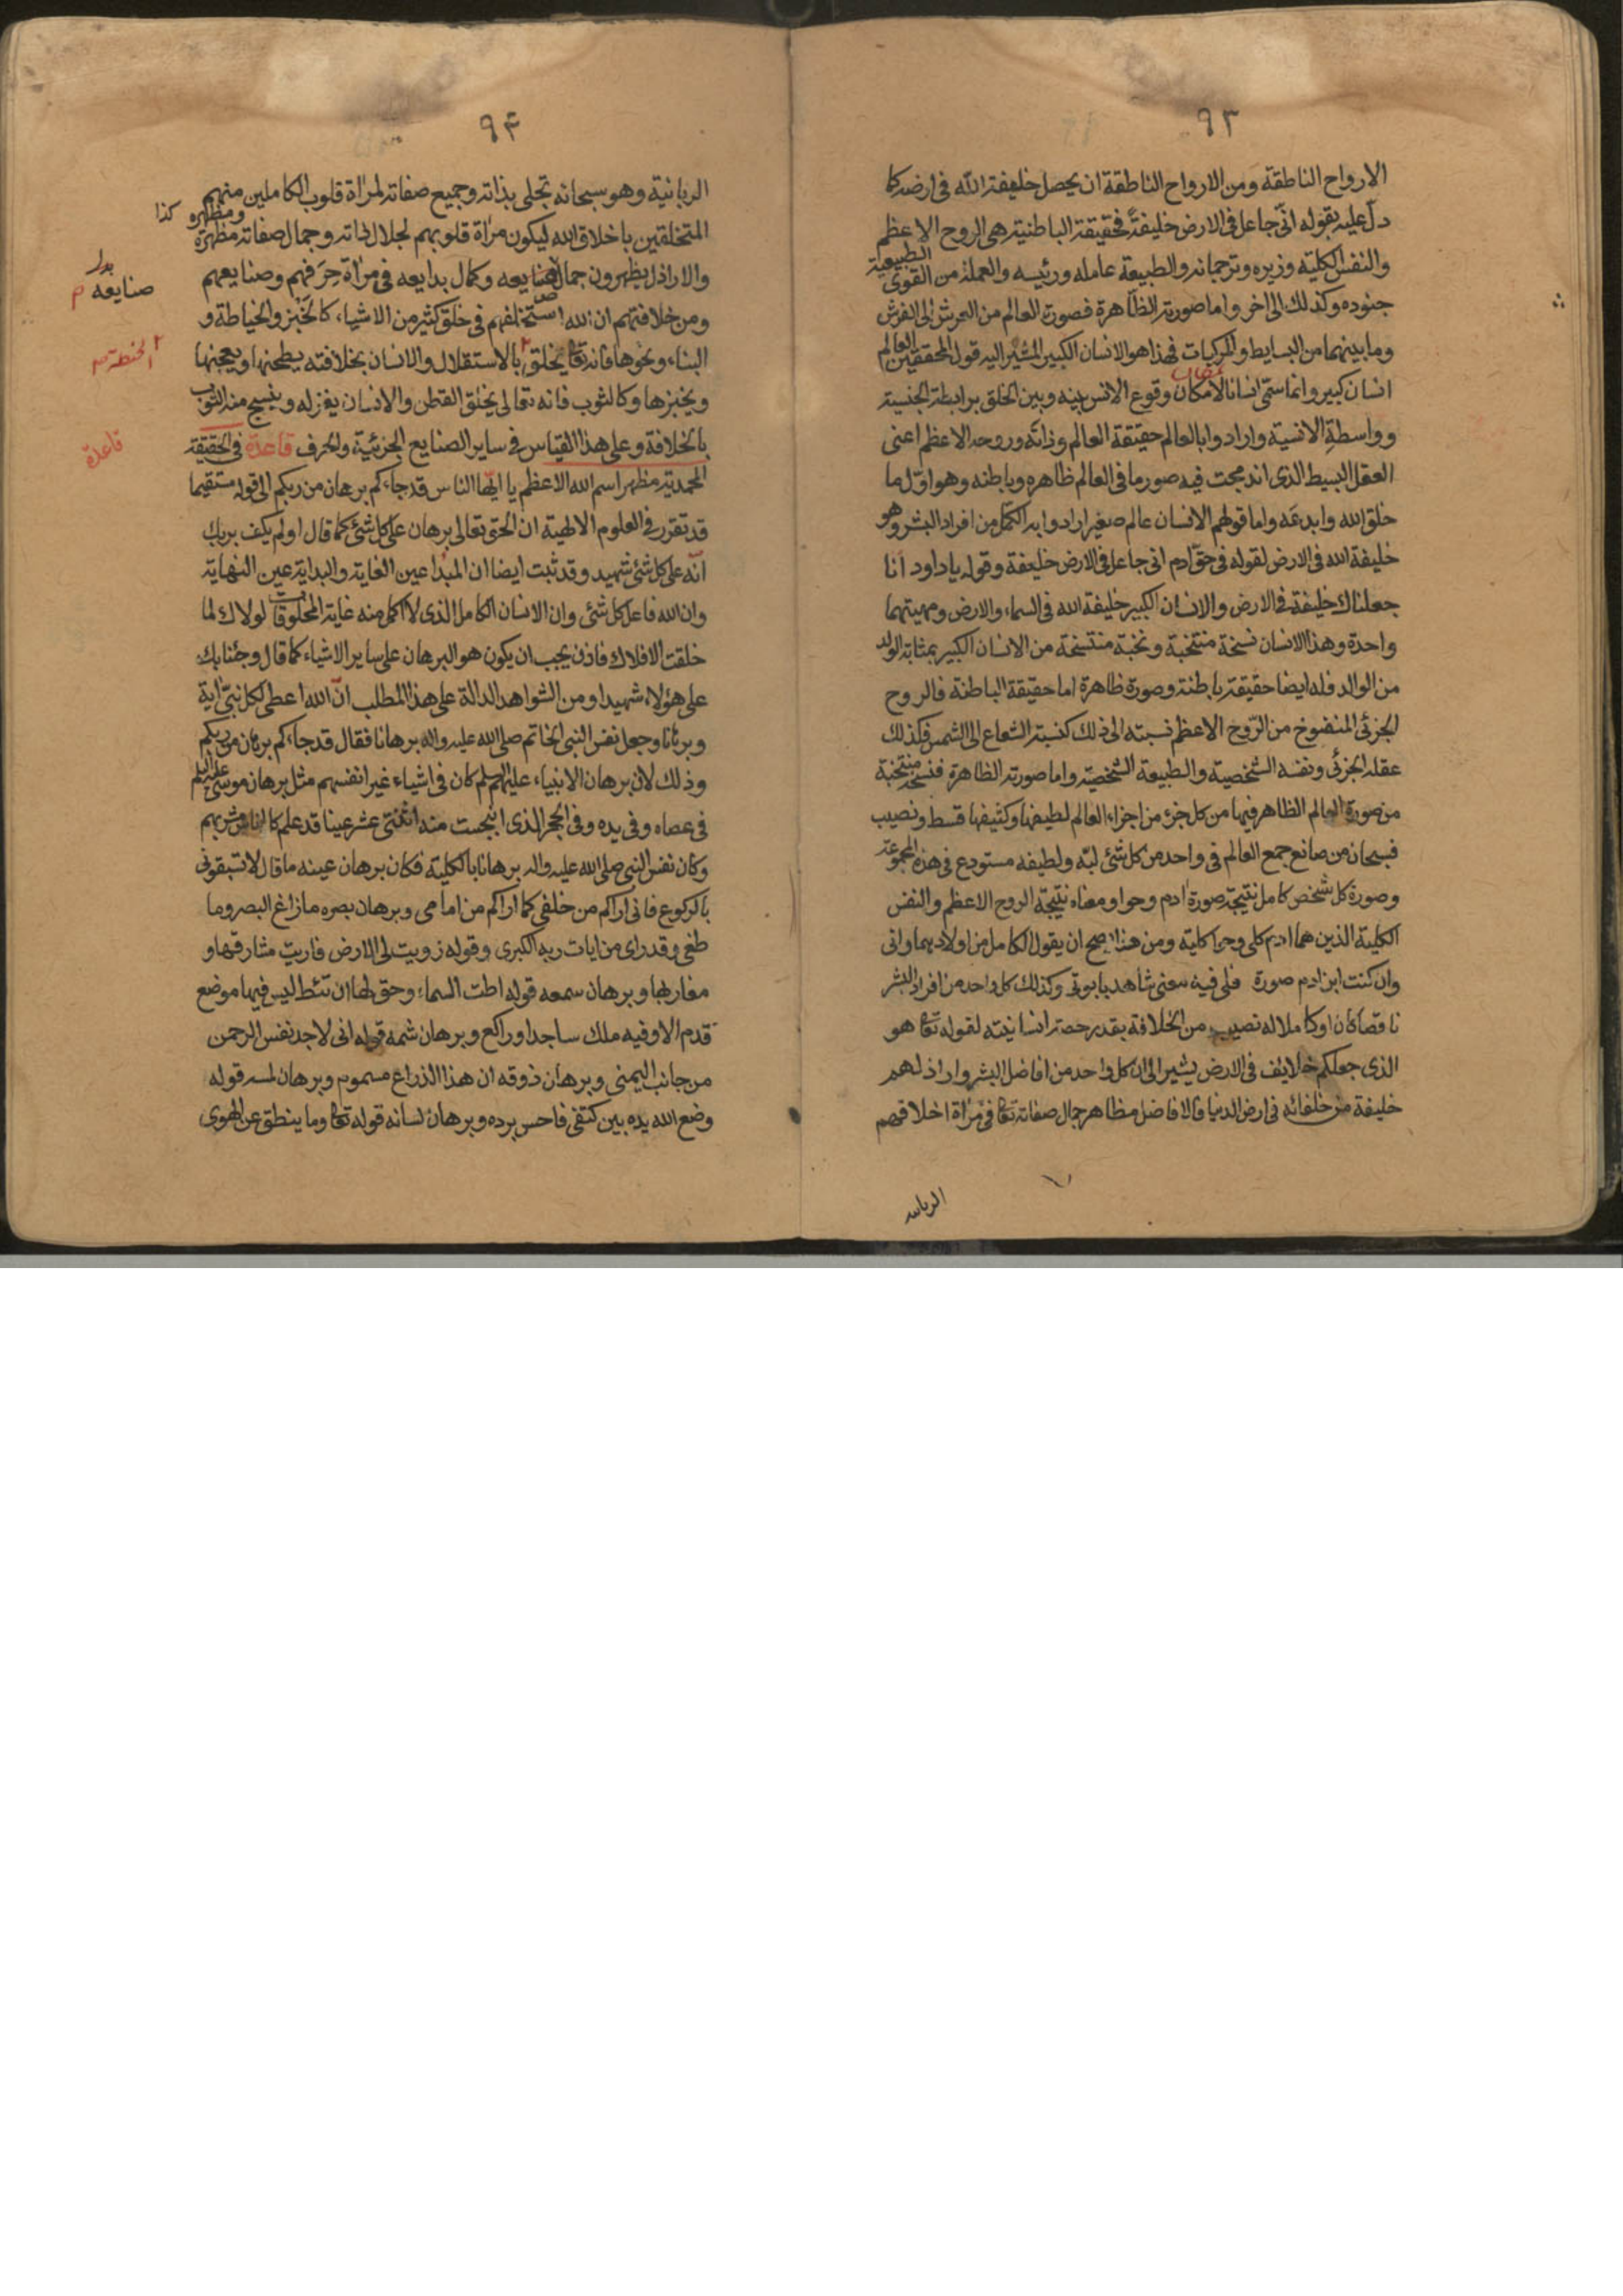 ٩٣
الارواح الناطقة ومن الارواح الناطقة ان يحصل خليفة الله فى ارضه كما
دل عليه بقوله انى جاعل فى الارض خليفة فحقيقة الباطنية هى الروح الاعظم
والنفس الكلية وزيره وترجمانه والطبيعة عامله ورئيسه والعملة من القوى الطبيعية
جنوده وكذلك الى اخر واما صورته الظاهرة فصورة العالم من العرش الى الفرش
وما بينهما من البسايط والمركبات فهذا هو الانسان الكبير المشير اليه قول المحققين العالم
انسان كبير وانما سمى انسانا لامكان وقوع الانس بينه وبين الخلق برابطة الجنسية
وواسطة الانسية وارادوا بالعالم حقيقة العالم وذاته وروحه الاعظم اعنى
العقل البسيط الذى اندمجت فيه صور ما فى العالم ظاهره وباطنه وهو اول ما
خلق الله وابدعه واما قولهم الانسان عالم صغير ارادوا به الكمل من افراد البشر وهو
خليفة الله فى الارض لقوله فى حق ادم انى جاعل فى الارض خليفة وقوله ياداود انا
جعلناك خليفة فى الارض والانسان الكبير خليفة الله فى السماء والارض ومهيتهما
واحدة وهذا الانسان نسخة منتخبة ونخبة منتسخة من الانسان الكبير بمثابة الولد
من الوالد فله ايضا حقيقة باطنة وصورة ظاهرة اما حقيقة الباطنة فالروح
الجزئى المنفوخ من الروح الاعظم نسبته الى ذلك كنسبة الشعاع الى الشمس فكذلك
عقله الجزئى ونفسه الشخصية والطبيعة الشخصية واما صورته الظاهرة فنسخة منتخبة
من صورة العالم الظاهر فيها من كل جزء من اجزاء العالم لطيفها وكثيفها قسط ونصيب
فسبحان من صانع جمع العالم فى واحد من كل شئ لبه ولطيفه مستودع فى هذه المجموعة
وصورة كل شخص كامل نتيجة صورة ادم وحوا ومعناه نتيجة الروح الاعظم والنفس
الكلية الذين هما ادم كلى وحوا كلية ومن هذا صح ان يقول الكامل من اولادهما وانى
وان كنت ابن ادم صورة فلى فيه معنى شاهد بابوتى وكذلك كل واحد من افراد البشر
ناقصا كان او كاملا له نصيب من الخلافة بقدر حصة انسانيته لقوله تعا هو
الذى جعلكم خلايف فى الارض يشير الى ان كل واحد من افاضل البشر واراذلهم
خليفة من خلفائه فى ارض الدنيا فالافاضل مظاهر جمال صفاته تعا فى مراة اخلاقهم
الربانية
٩٤
الربانية وهو سبحانه تجلى بذاته وجميع صفاته لمراة قلوب الكاملين منهم
المتخلقين باخلاق الله ليكون مراة قلوبهم لجلال ذاته وجمال صفاته مظهرة
ومظهره كذا
والاراذل يظهرون جمال صنايعه وكمال بدايعه فى مراة حرفهم وصنايعهم
بدل
صنايعه م
ومن خلافتهم ان الله استخلفهم فى خلق كثير من الاشياء كالخبز والخياطة و
البناء ونحوها فانه تعا يخلق بالاستقلال والانسان بخلافته يطحنها ويعجنها
الحنطة
ويخبزها وكالثوب فانه تعالى يخلق القطن والانسان يغزله وينسج منه الثوب
بالخلافة وعلى هذا القياس فى ساير الصنايع الجزئية والحرف قاعدة فى الحقيقة
قاعدة
المحمدية مظهر اسم الله الاعظم يا ايها الناس قد جاءكم برهان من ربكم الى قوله مستقيما
قد تقرر فى العلوم الالهية ان الحق تعالى برهان على كل شئ كما قال اولم يكف بربك
انه على كل شئ شهيد وقد ثبت ايضا ان المبدا عين الغاية والبداية عين النهاية
وان الله فاعل كل شئ وان الانسان الكامل الذى لا اكمل منه غاية المخلوقات لولاك لما
خلقت الافلاك فاذن يجب ان يكون هو البرهان على ساير الاشياء كما قال وجئنا بك
على هؤلاء شهيدا ومن الشواهد الدالة على هذا المطلب ان الله اعطى لكل نبى اية
وبرهانا وجعل نفس النبى الخاتم صلى الله عليه واله برهانا فقال قد جاءكم برهان من ربكم
وذلك لان برهان الانبياء عليهم السلم كان فى اشياء غير انفسهم مثل برهان موسى عليه السلم
فى عصاه وفى يده وفى الحجر الذى انبجست منه اثنتى عشر عينا قد علم كل اناس مشربهم
وكان نفس النبى صلى الله عليه واله برهانا بالكلية فكان برهان عينه ما قال لا تسبقونى
بالركوع فانى اراكم من خلفى كما اراكم من امامى وبرهان بصره ما زاغ البصر وما
طغى وقد راى من ايات ربه الكبرى وقوله زويت لى الارض فاريت مشارقها و
مغاربها وبرهان سمعه قوله اطت السماء وحق لها ان تئط ليس فيها موضع
قدم الا وفيه ملك ساجد او راكع وبرهان شمه قوله انى لاجد نفس الرحمن
من جانب اليمنى وبرهان ذوقه ان هذا الذراع مسموم وبرهان لمسه قوله
وضع الله يده بين كتفى فاحس برده وبرهان لسانه قوله تعا وما ينطق عن الهوى